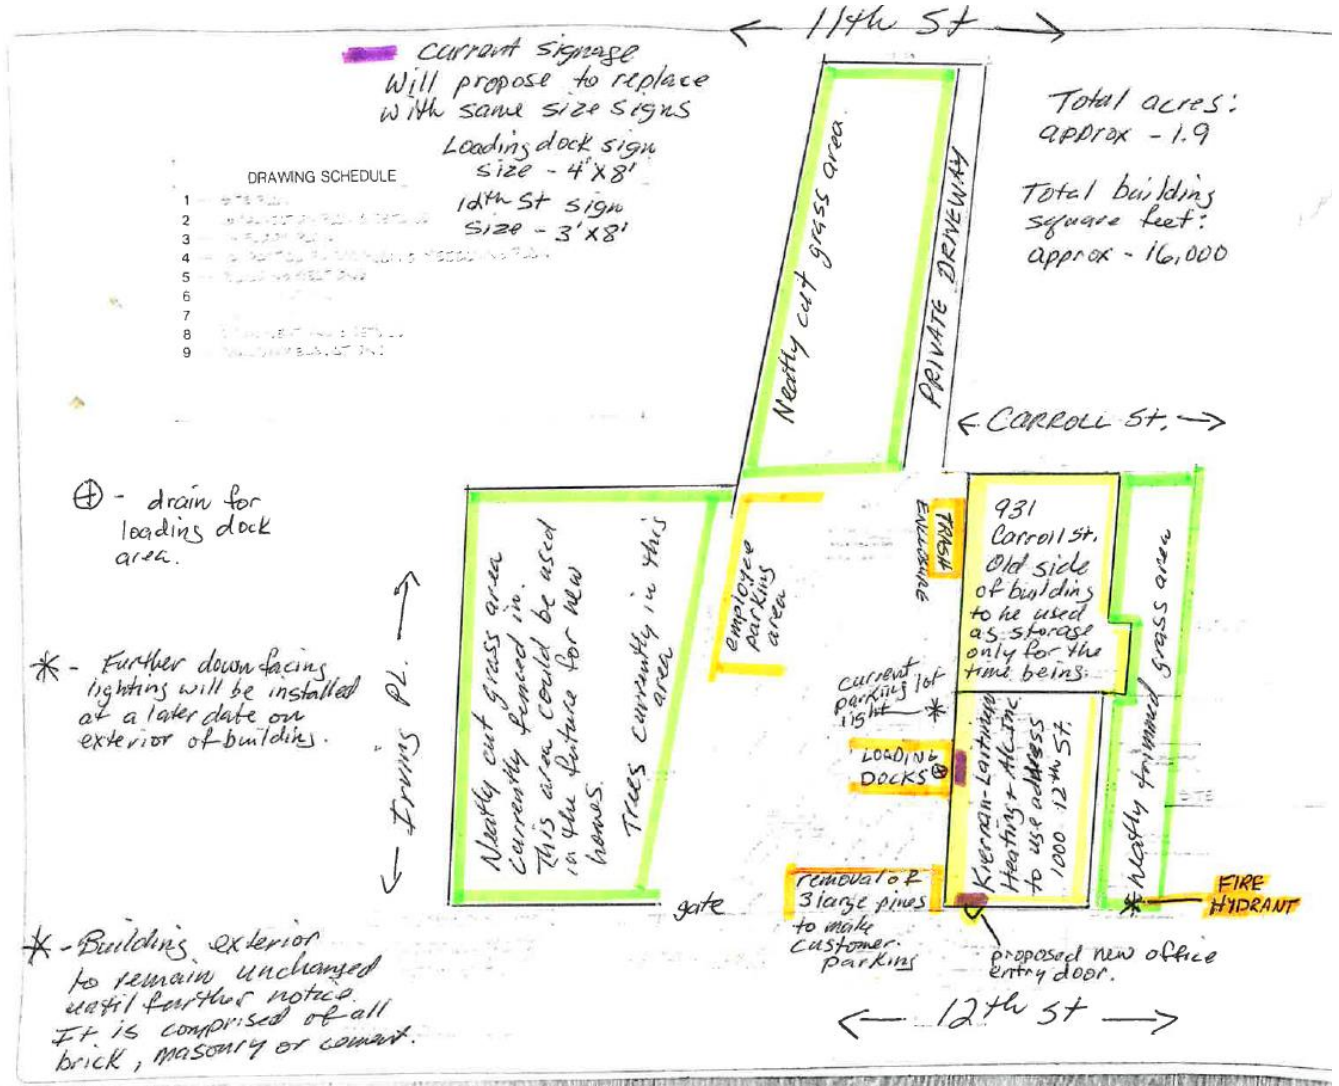 ← 11th St →
current signage
Will propose to replace
with same size signs
Loading dock sign
size - 4'X8'
12th St sign
size - 3'X8'
Total acres:
approx - 1.9
Total building
square feet:
approx - 16,000
DRAWING SCHEDULE
1
2
3
4
5
6
7
8
9
Neatly cut grass area
PRIVATE DRIVEWAY
← CARROLL St. →
⊕ - drain for
loading dock
area.
* - Further down facing
lighting will be installed
at a later date on
exterior of building.
← Irving PL. →
Neatly cut grass area
currently fenced in.
This area could be used
in the future for new
homes.
Trees currently in this
area
employee
parking
area
TRASH
ENCLOSURE
931
Carroll St.
Old side
of building
to be used
as storage
only for the
time being.
Neatly trimmed grass area
current
parking lot
light *
LOADING
DOCKS ⊕
Kiernan-Laitinen
Heating + Air Inc
to use address
1000 12th St.
removal of
3 large pines
to make
customer
parking
gate
FIRE
HYDRANT
*
proposed new office
entry door.
* - Building exterior
to remain unchanged
until further notice.
It is comprised of all
brick, masonry or cement.
← 12th St →